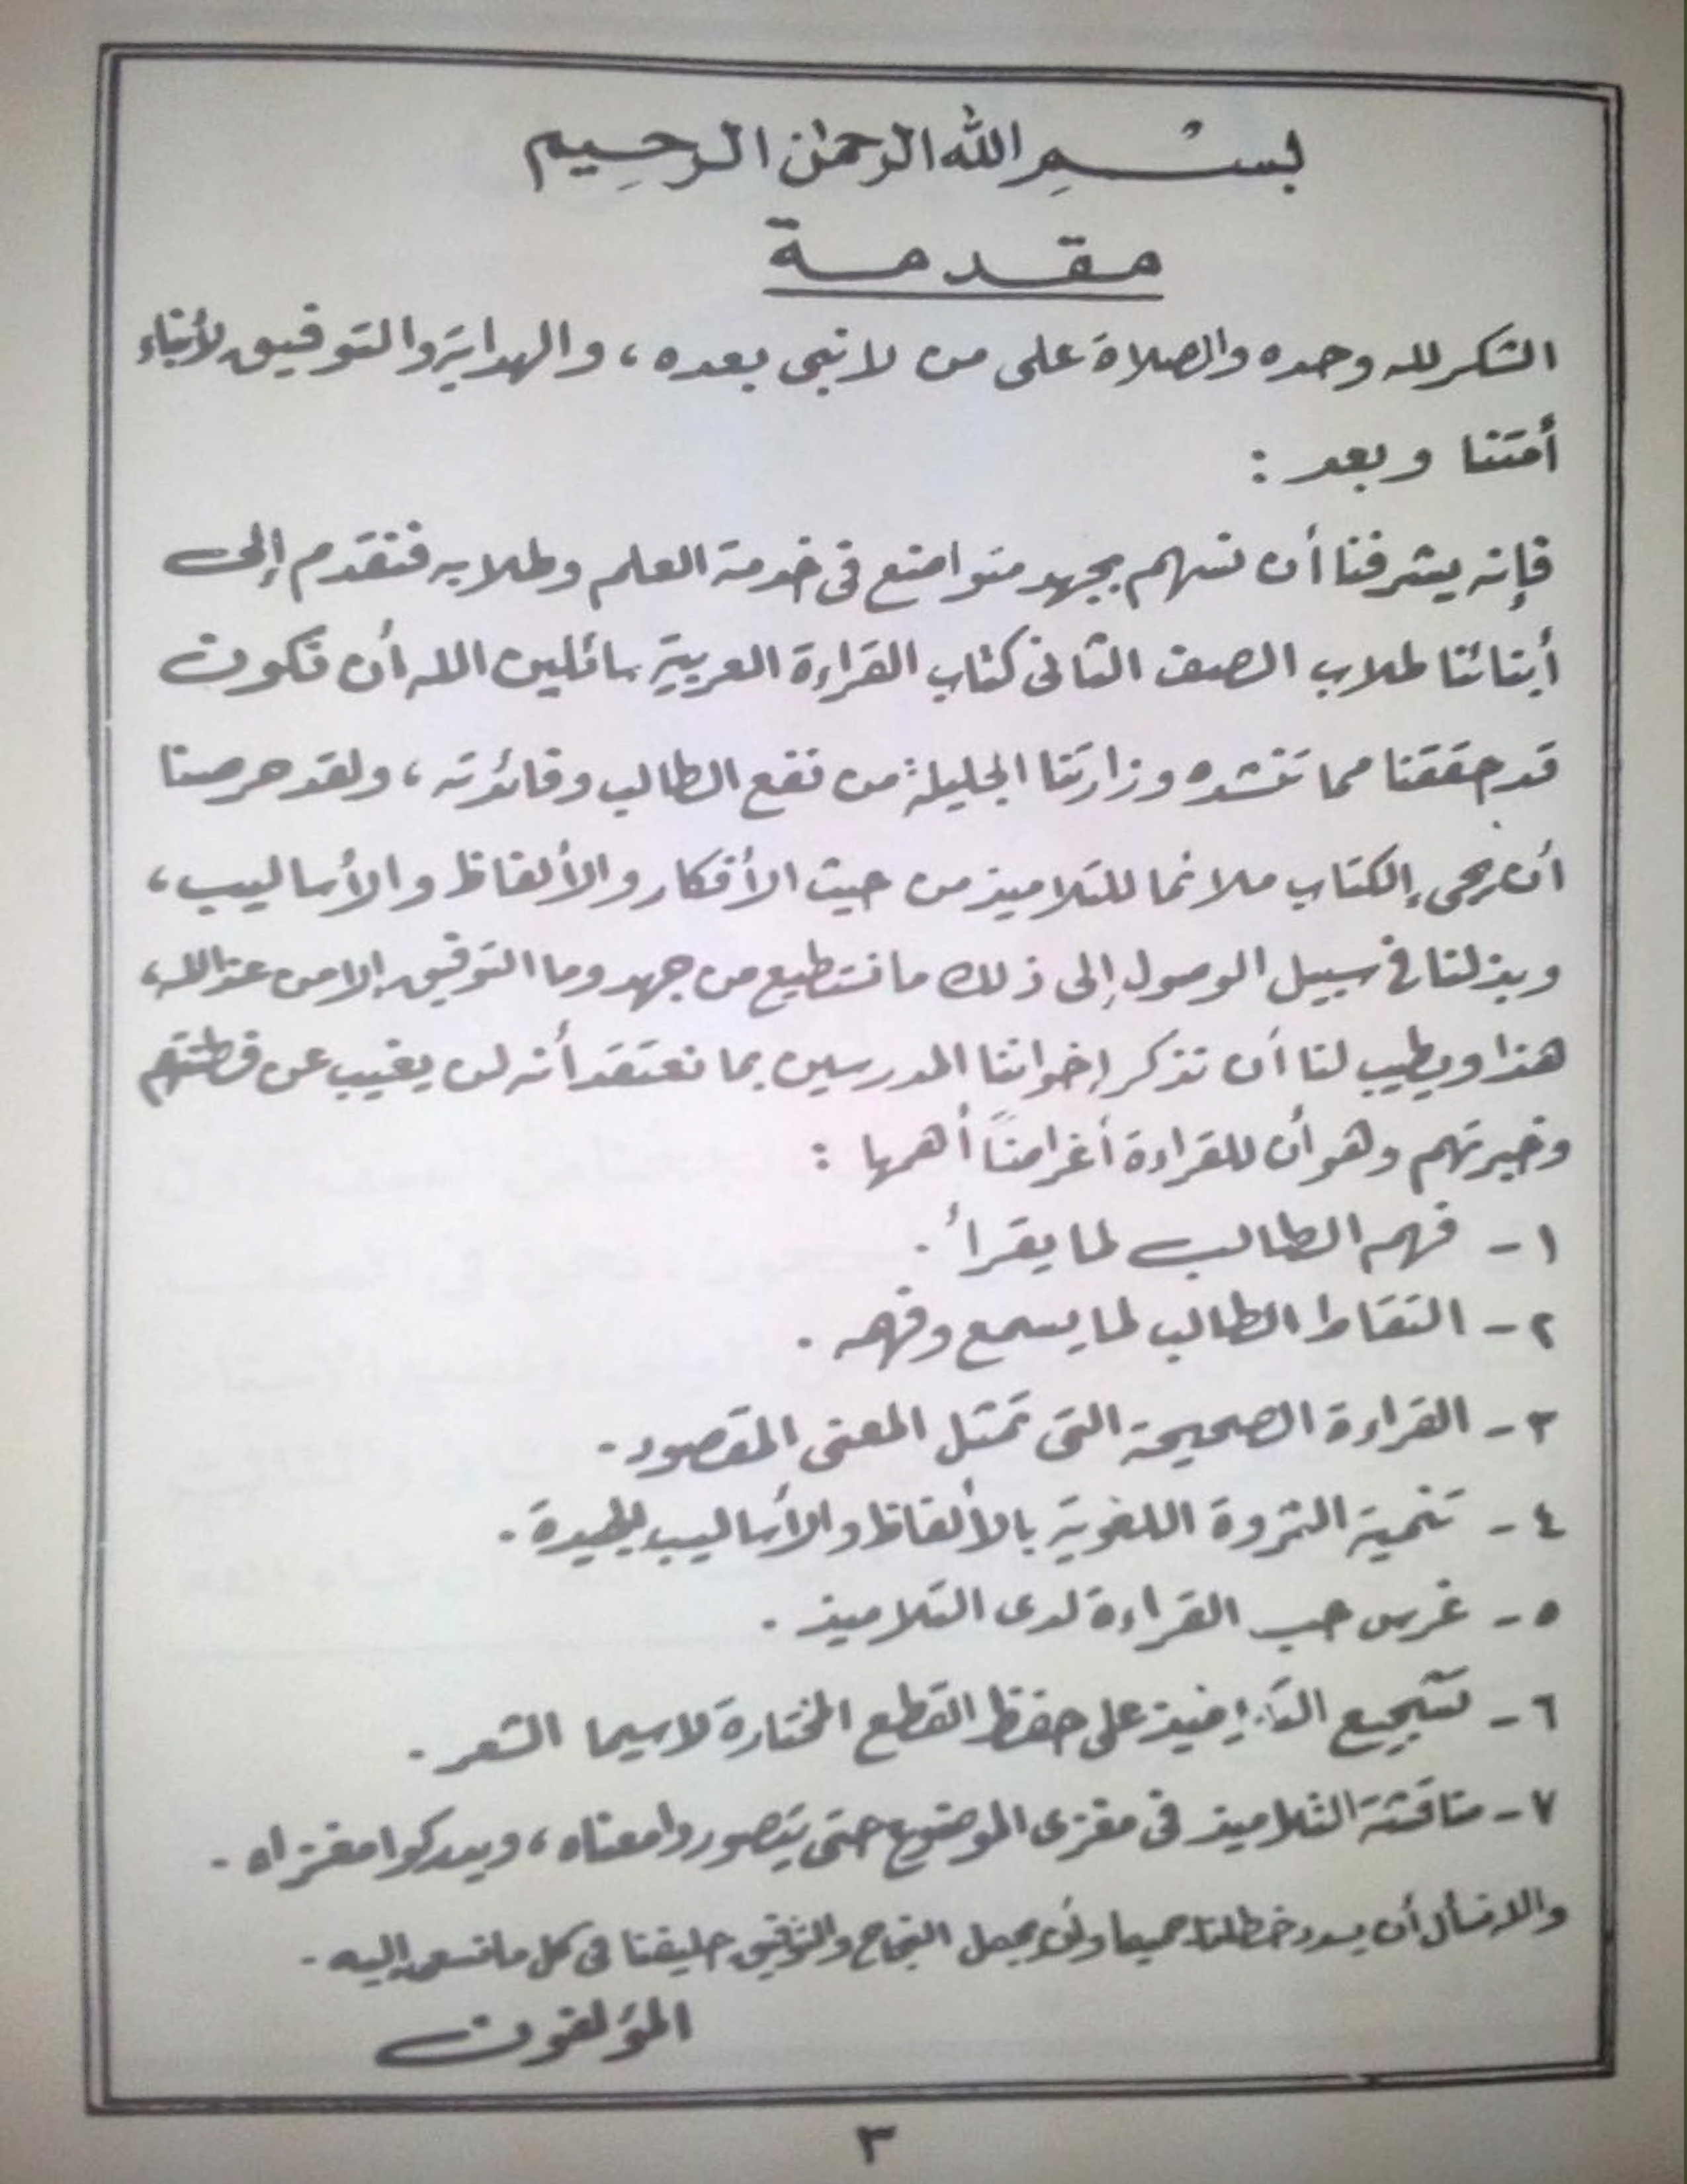 بسْمِ الله الرحمٰن الرحِيم
مقدمة
الشكر لله وحده والصلاة على من لا نبى بعده ، والهداية والتوفيق لأبناء
أمتنا وبعد :
فإنه يشرفنا أن نسهم بجهد متواضع فى خدمة العلم وطلابه فنقدم إلى
أبنائنا طلاب الصف الثانى كتاب القراءة العربية سائلين الله أن نكون
قد حققنا مما تنشده وزارتنا الجليلة من نفع الطالب وفائدته ، ولقد حرصنا
أن يجىء الكتاب ملائما للتلاميذ من حيث الأفكار والألفاظ والأساليب ،
وبذلنا فى سبيل الوصول إلى ذلك ما نستطيع من جهد وما التوفيق إلا من عند الله ،
هذا ويطيب لنا أن نذكر إخواننا المدرسين بما نعتقد أنه لن يغيب عن فطنتهم
وخبرتهم وهو أن للقراءة أغراضاً أهمها :
١ - فهم الطالب لما يقرأ .
٢ - التقاط الطالب لما يسمع وفهمه .
٣ - القراءة الصحيحة التى تمثل المعنى المقصود .
٤ - تنمية الثروة اللغوية بالألفاظ والأساليب الجيدة .
٥ - غرس حب القراءة لدى التلاميذ .
٦ - تشجيع التلاميذ على حفظ القطع المختارة لاسيما الشعر .
٧ - مناقشة التلاميذ فى مغزى الموضوع حتى يتصوروا معناه ، ويدركوا مغزاه .
والله نسأل أن يسدد خطانا جميعا وأن يجعل النجاح والتوفيق حليفنا فى كل ما نسعى إليه .
المؤلفون
٣